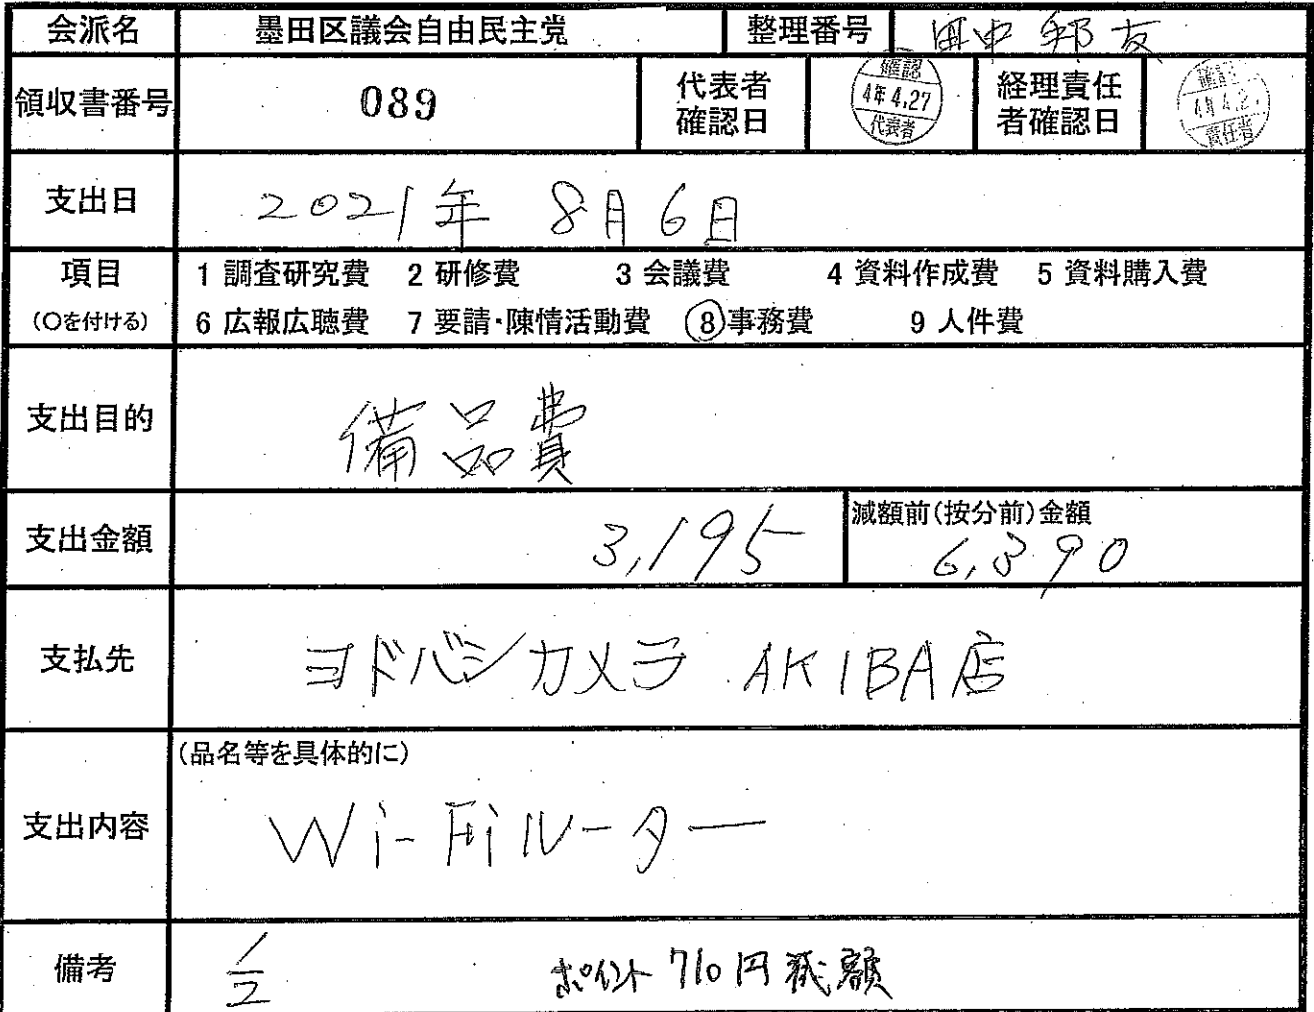 会派名 墨田区議会自由民主党 整理番号 田中邦友
領収書番号 089 代表者確認日 確認 4年4.27 代表者 経理責任者確認日 確認 4年4.2 責任者
支出日 2021年 8月6日
項目 1 調査研究費 2 研修費 3 会議費 4 資料作成費 5 資料購入費
(○を付ける) 6 広報広聴費 7 要請・陳情活動費 ⑧事務費 9 人件費
支出目的 備品費
支出金額 3,195 減額前(按分前)金額
6,390
支払先 ヨドバシカメラ AKIBA店
(品名等を具体的に)
支出内容 Wi-Fiルーター
備考 1/2 ポイント710円減額